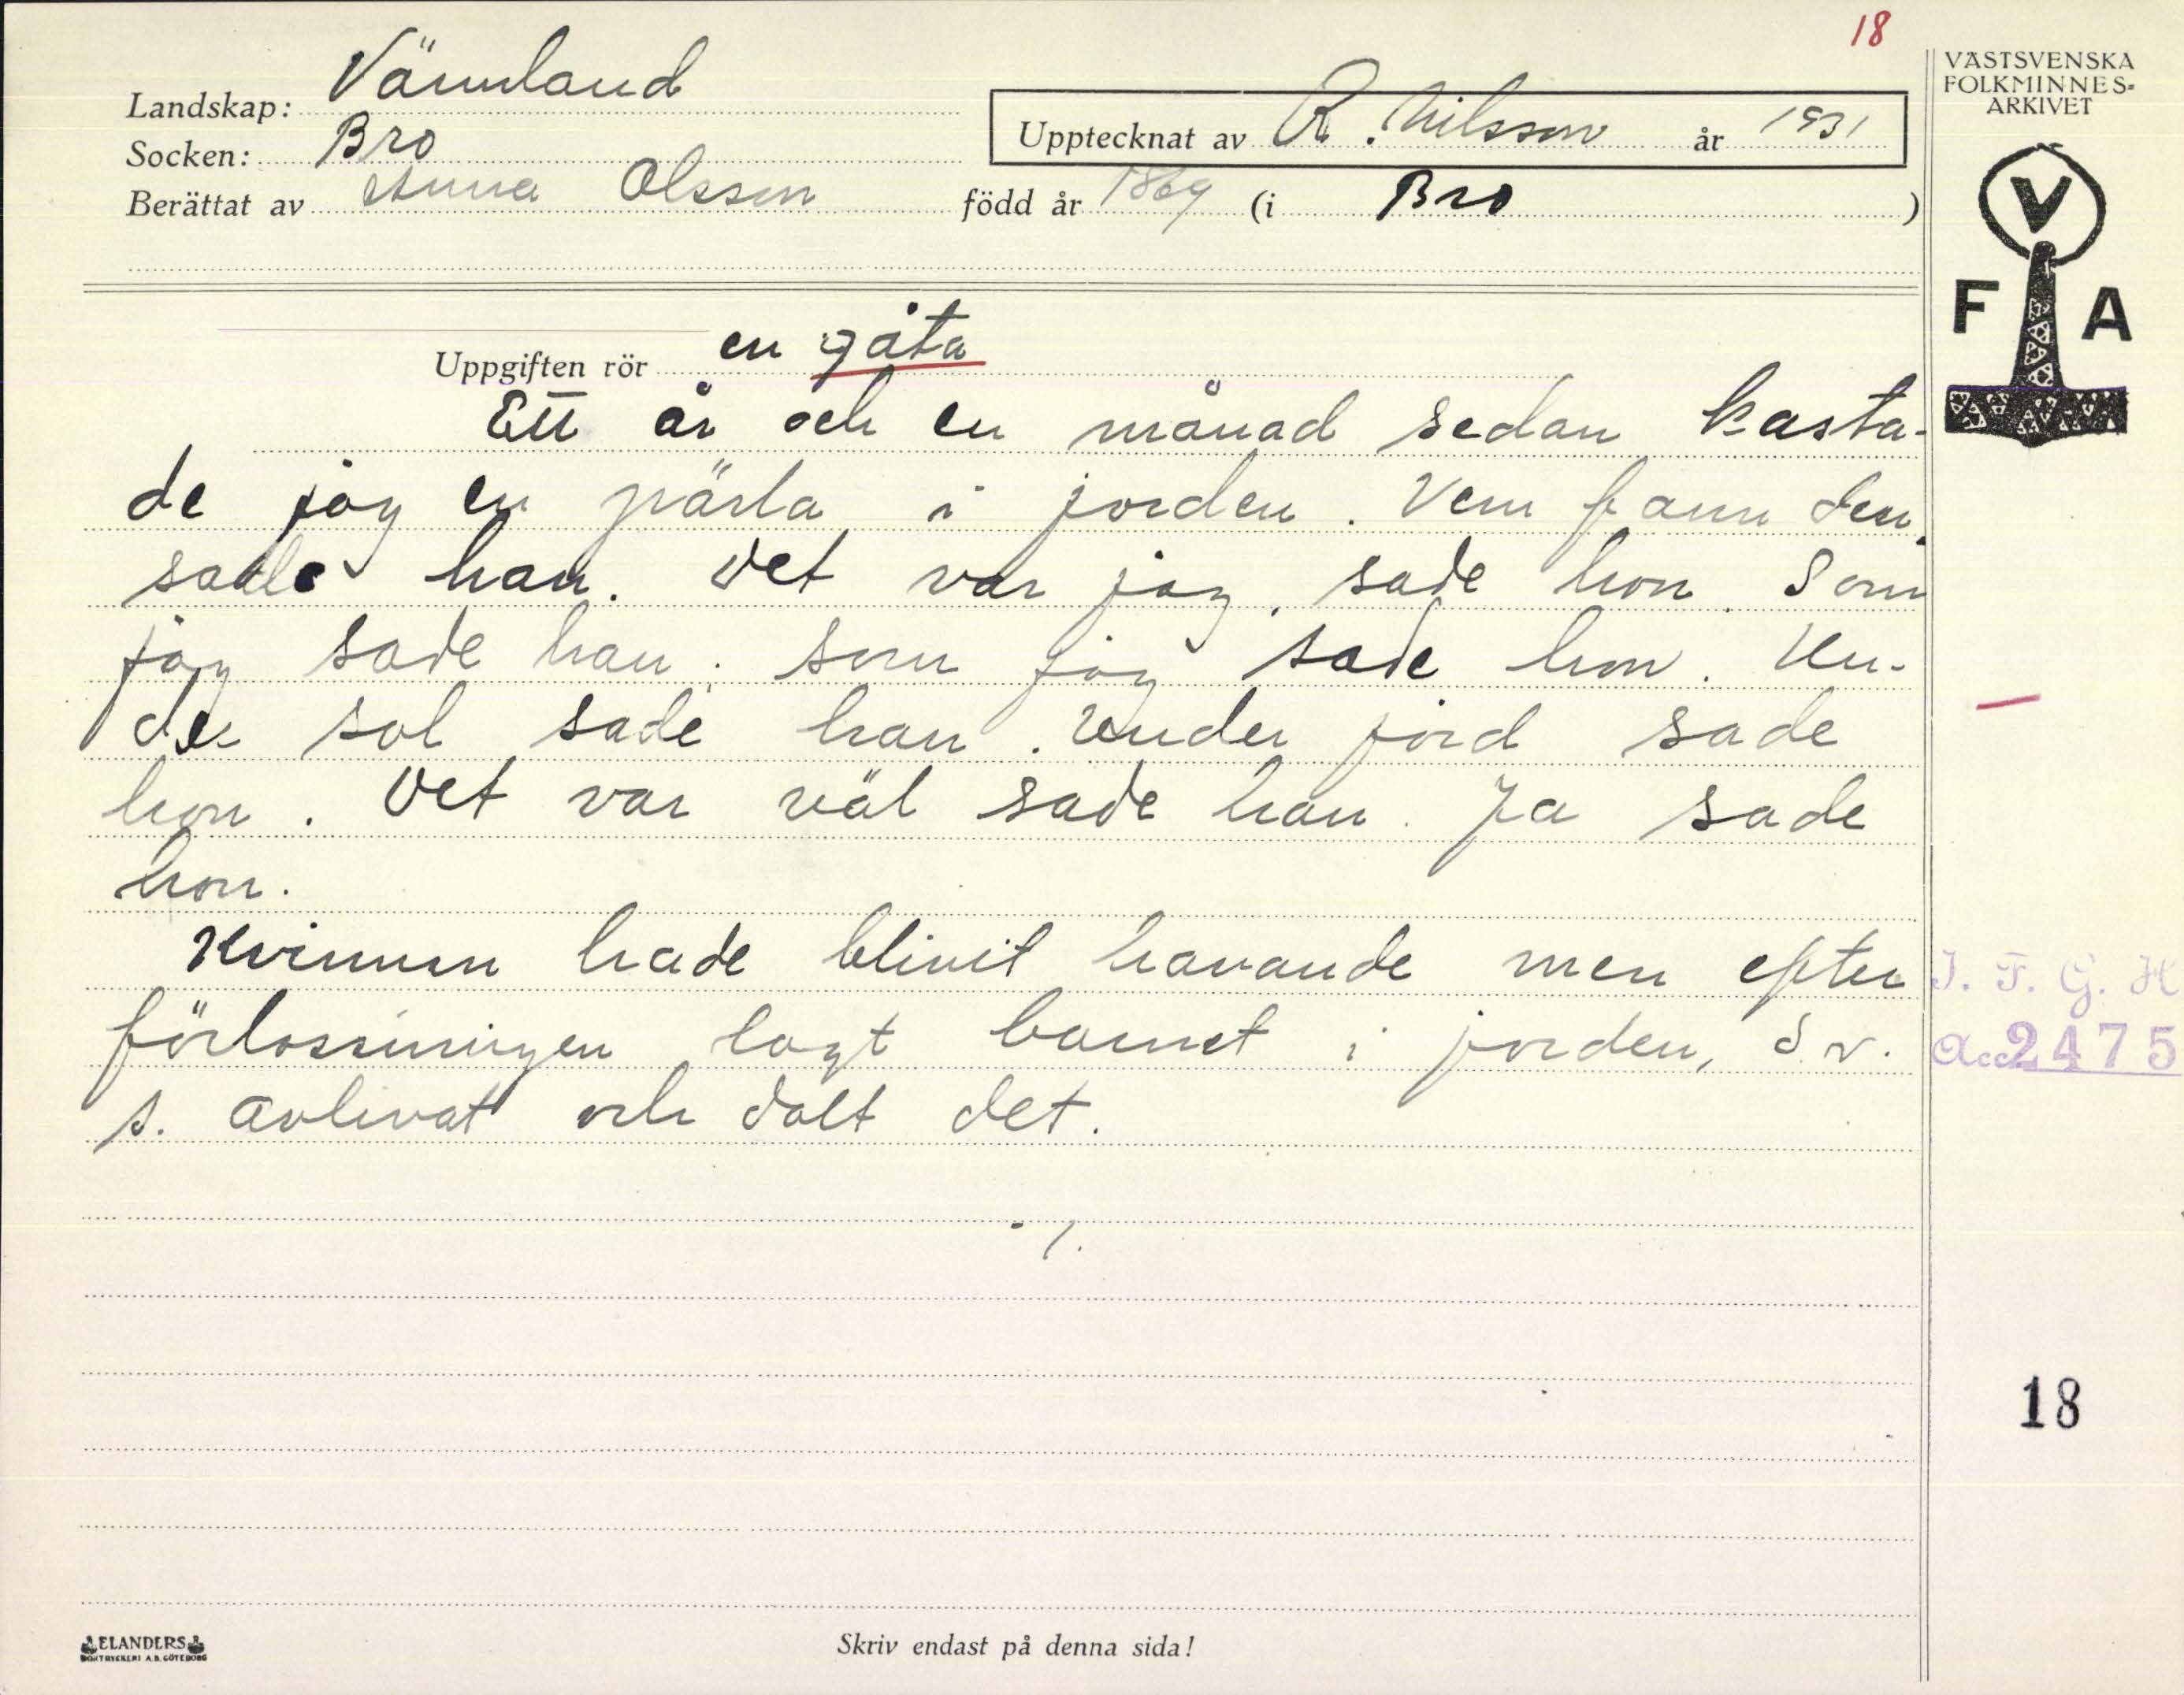 18
VÄSTSVENSKA
FOLKMINNES-
ARKIVET
Landskap: Värmland
Socken: Bro
Upptecknat av R. Nilsson år 1931
Berättat av Anna Olsson född år 1869 (i Bro)
V
F A
Uppgiften rör en gåta
Ett år och en månad sedan kasta-
de jag en pärla i jorden. Vem fann den,
sade han. Det var jag, sade hon. Som
jag sade han; som jag sade hon. Un-
der sol sade han. Under jord sade
hon. Det var väl sade han. Ja sade
hon.
Kvinnan hade blivit havande men efter
förlossningen lagt barnet i jorden, d. v.
s. avlivat och dolt det.
I. F. G. H
Acc. 2475
18
ELANDERS
BOKTRYCKERI A.B. GÖTEBORG
Skriv endast på denna sida!